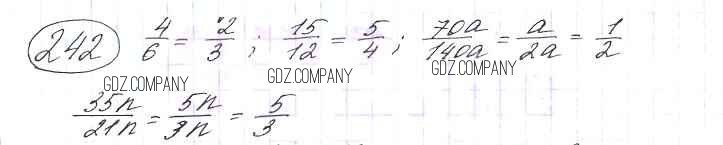 242 4/6 = 2/3 ; 15/12 = 5/4 ; 70a/140a = a/2a = 1/2
GDZ.COMPANY GDZ.COMPANY GDZ.COMPANY
35n/21n = 5n/3n = 5/3